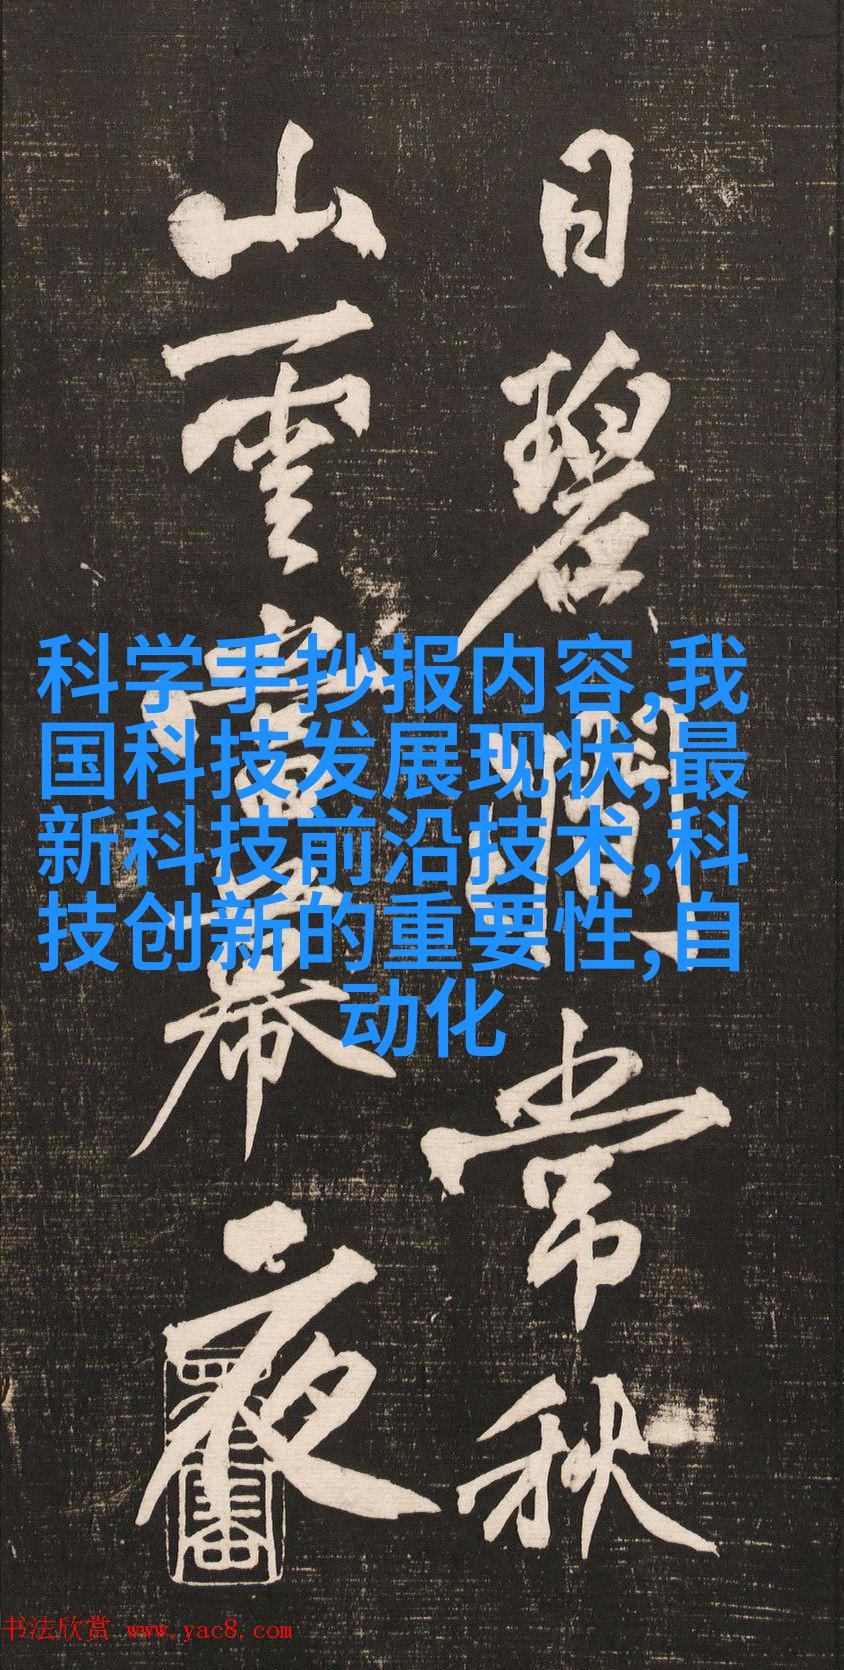 日碧澗常秋
山雲當幕夜
科学手抄报内容,我
国科技发展现状,最
新科技前沿技术,科
技创新的重要性,自
动化
书法欣赏 www.yac8.com